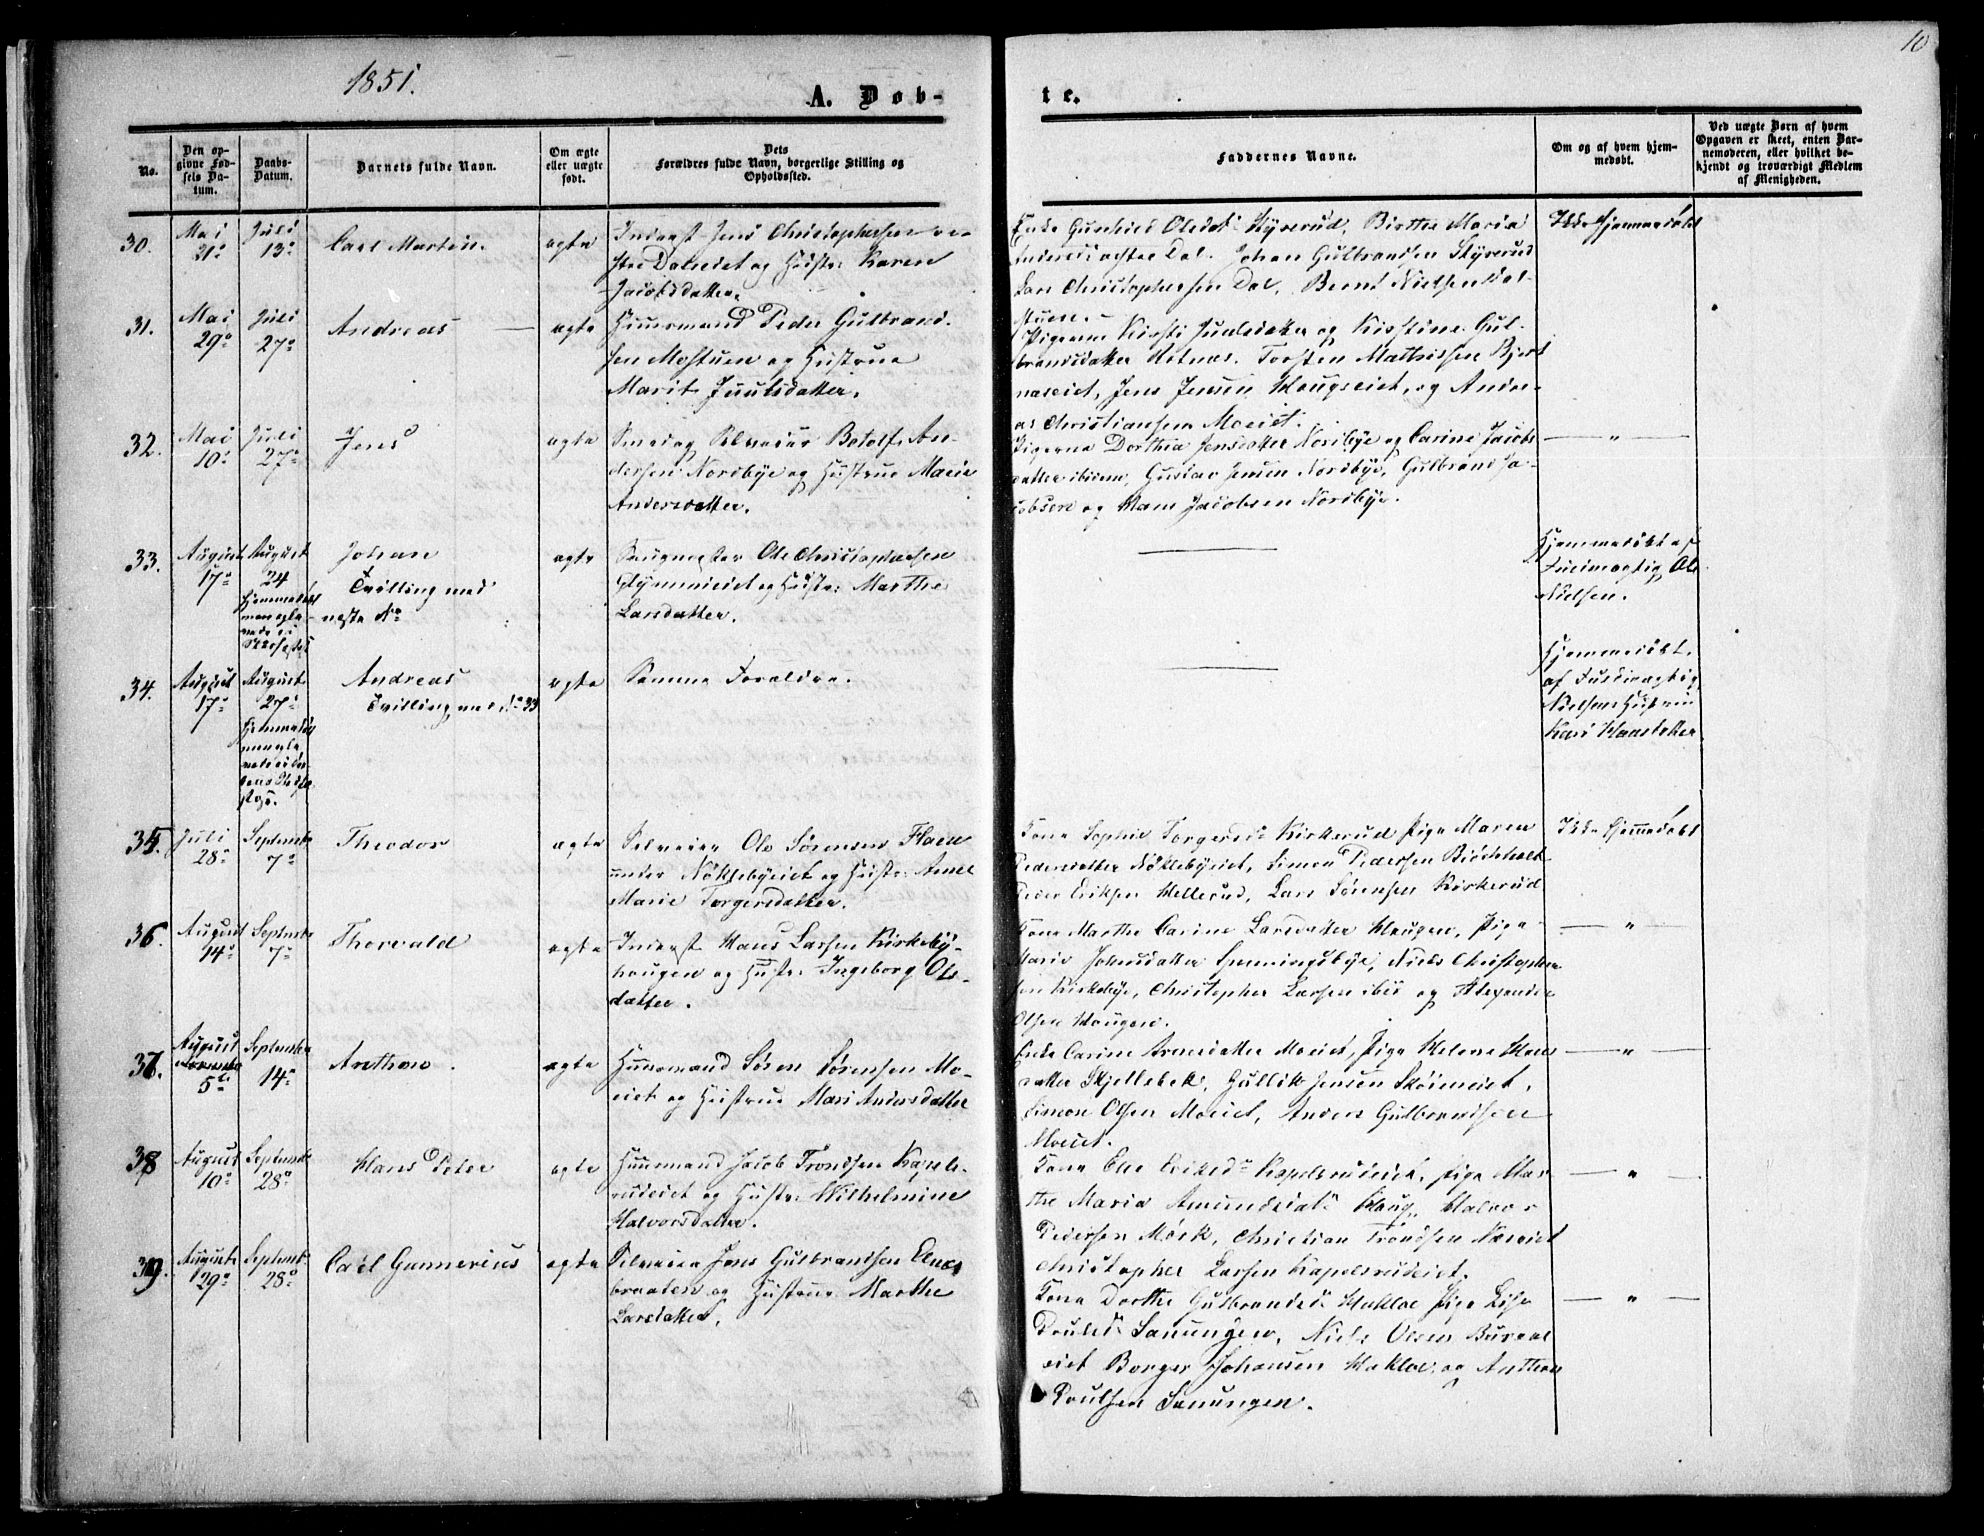 1851.
10
A. Døb-
te.
No.
Den op-
givne Fød-
sels Da-
tum.
Daabs-
Datum.
Barnets fulde Navn.
Om ægte
eller uægte
født.
Dets
Forældres fulde Navn, borgerlige Stilling og
Opholdssted.
Faddernes Navne.
Om og af hvem hjem-
medøbt.
Ved uægte Børn af hvem
Opgaven er skeet, enten Bar-
nemoderen, eller hvilket be-
kjendt og troværdigt Medlem
af Menigheden.
30.
Mai
21
Juli
13
Carl Martin.
ægte
Inderst Jens Christophersen ve-
stre Daleiet og Hustr: Karen
Jacobsdatter.
Enke Gunhild Olsdat: Styrerud, Birthe Maria
Dal. Johan Gulbrandsen Styrerud
Lars Christophersen Dal, Bernt Nielsen Dal-
stuen.
Ikke Hjemmedøbt
31.
Mai
29
Juli
27
Andreas
ægte
Huusmand Peder Gulbrand-
sen Mostuen og Hustrue
Marit Juulsdatter.
Pigerne Kirsti Juulsdatter og Kirstine Gul-
brandsdatter Hotnæs. Torsten Mathissen Bjert
næseiet, Jens Jensen Haugseiet, og Andre-
as Christiansen Moeiet.
32.
Mai
10
Juli
27
Jens
ægte
Smed og Selveier Botolf An-
dersen Nordbye og Hustrue Marie
Andersdatter.
Pigerne Dorthea Jensdatter Nordbye og Carine Jacobs
datter ibidem, Gustav Jensen Nordbye, Gulbrand Ja-
cobsen og Hans Jacobsen Nordbye.
— " —
33.
August
17
August
24
Hjemmedøbt
Johan
Tvilling med
næste No
ægte
Ole Christophersen
Glymmeiet og Hustr: Marthe
Larsdatter.
Hjemmedøbt af
Fuldmægtig Ole
Nielsen.
34.
August
17
August
27
Hjemmedøbt
Andreas
Tvilling med No 33
ægte
Samme Forældre.
Hjemmedøbt
af Fuldmægtig
Nielsens Hustrue
Kari
35.
Juli
28
September
7
Theodor
ægte
Selveier Ole Sørensen Flaen
under Nøklebyeiet og Hustr: Anne
Marie Torgersdatter.
Kone Sophie Torgersd: Kirkerud Pige Maren
Pedersdatter Nøklebyeiet, Simen Pedersen Bjødeholt
Peder Eriksen Hellerud, Lars Sørensen Kirkerud
Ikke Hjemmedøbt
36.
August
14
September
7
Thorvald
ægte
Inderst Hans Larsen Kirkeby-
haugen og Hustr: Ingeborg Ols-
datter.
Kone Marthe Carine Larsdatter Haugen, Pige
Marie Johnsdatter Henningsbye, Niels Christopher
sen Kirkebye, Christopher Larsen ibid og Alexander
Olsen Haugen.
— " —
37.
August
5
September
14
Anthon
ægte
Huusmand Søren Sørensen Mo-
eiet og Hustrue Mari Andersdatter
Enke Carine Arnesdatter Moeiet, Pige Helene Hans
datter Skjellebek, Gullik Jensen Skøieneiet,
Simen Olsen Moeiet, Anders Gulbrandsen
Moeiet.
— " —
38
August
10
September
28
Hans Peter
ægte
Huusmand Jacob Trondsen Kapels-
rudeiet og Hustr: Wilhelmine
Halvorsdatter.
Kone Else Eriksd Kapelsrudeiet, Pige Mar-
the Maria Amundsdat: Haug, Halvor
Pedersen Mørk, Christian Trondsen Næseiet
Christopher Larsen Kapelsrudeiet.
— " —
39.
August
29
September
28
Carl Gunnerius
ægte
Selveier Jens Gulbrandsen Elnæs
braaten og Hustrue Marthe
Larsdatter.
Kone Dorthe Gulbrandsd: Hakloe Pige Lise
Poulsd: Sanungen, Niels Olsen Buraas
eiet Borger Johansen Hakloe, og Anthon
Poulsen Sanungen.
— " —